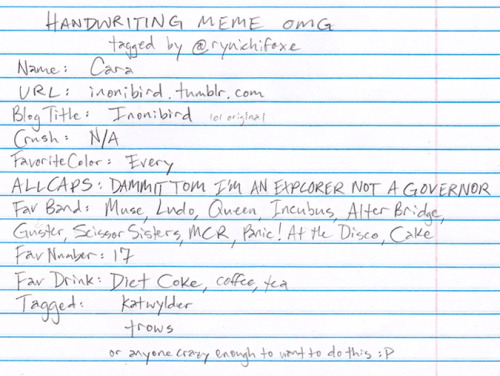 HANDWRITING MEME OMG
tagged by @rynichifoxe
Name: Cara
URL: inonibird.tumblr.com
Blog Title: Inonibird lol original
Crush: N/A
Favorite Color: Every
ALLCAPS: DAMMIT TOM I'M AN EXPLORER NOT A GOVERNOR
Fav Band: Muse, Ludo, Queen, Incubus, Alter Bridge,
Guster, Scissor Sisters, MCR, Panic! At the Disco, Cake
Fav Number: 17
Fav Drink: Diet Coke, coffee, tea
Tagged: katwylder
trows
or anyone crazy enough to want to do this :P